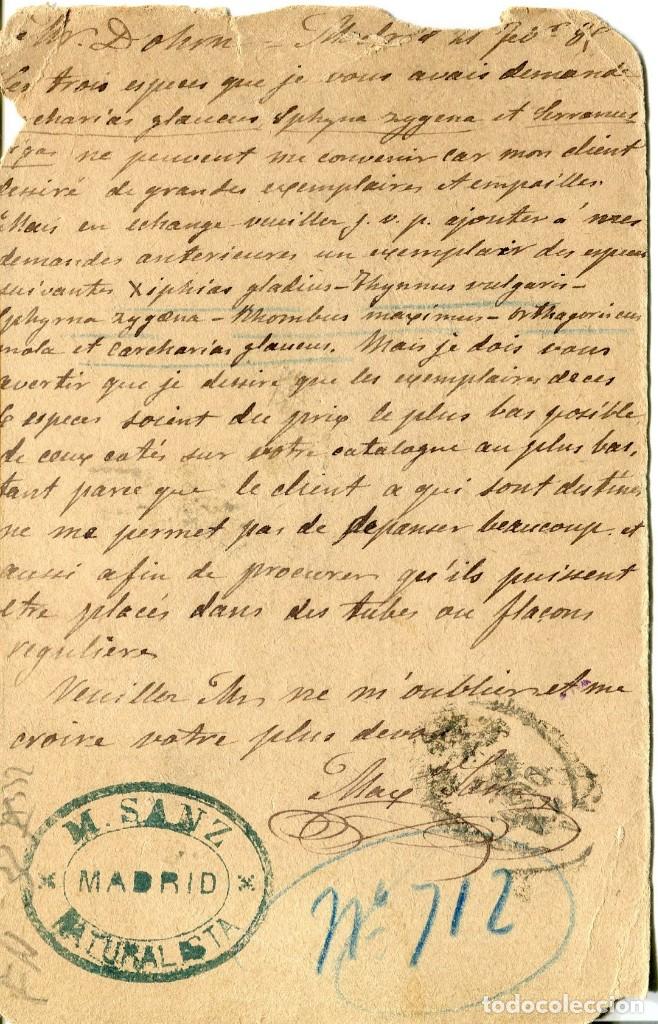 Mr. Dohrn - Madrid 21
les trois especes que je vous avais demandé
charias glaucus, Sphyna zygena et Serranus
gigas ne peuvent me convenir car mon client
dessiré de grandes exemplaires et empailles.
Mais en echange veuillez s. v. p. ajouter à mes
demandes anterieures un exemplair des especes
suivantes Xiphias gladius - Thynnus vulgaris -
Sphyrna zygœna - Rhombus maximus - Orthagoriscus
mola et Carcharias glaucus. Mais je dois vous
avertir que je dessire que les exemplaires de ces
6 especes soient du prix le plus bas posible
de ceux cotés sur votre catalogue au plus bas,
tant parce que le client a qui sont destines
ne me permet pas de depanser beaucoup. et
aussi afin de procurer qu'ils puissent
etre placés dans des tubes ou flacons
reguliers
Veuillez Mr. ne m'oublier et me
croire votre plus devoué
Max Sanz
M. SANZ
MADRID
NATURALISTA
Nº 712
todocoleccion